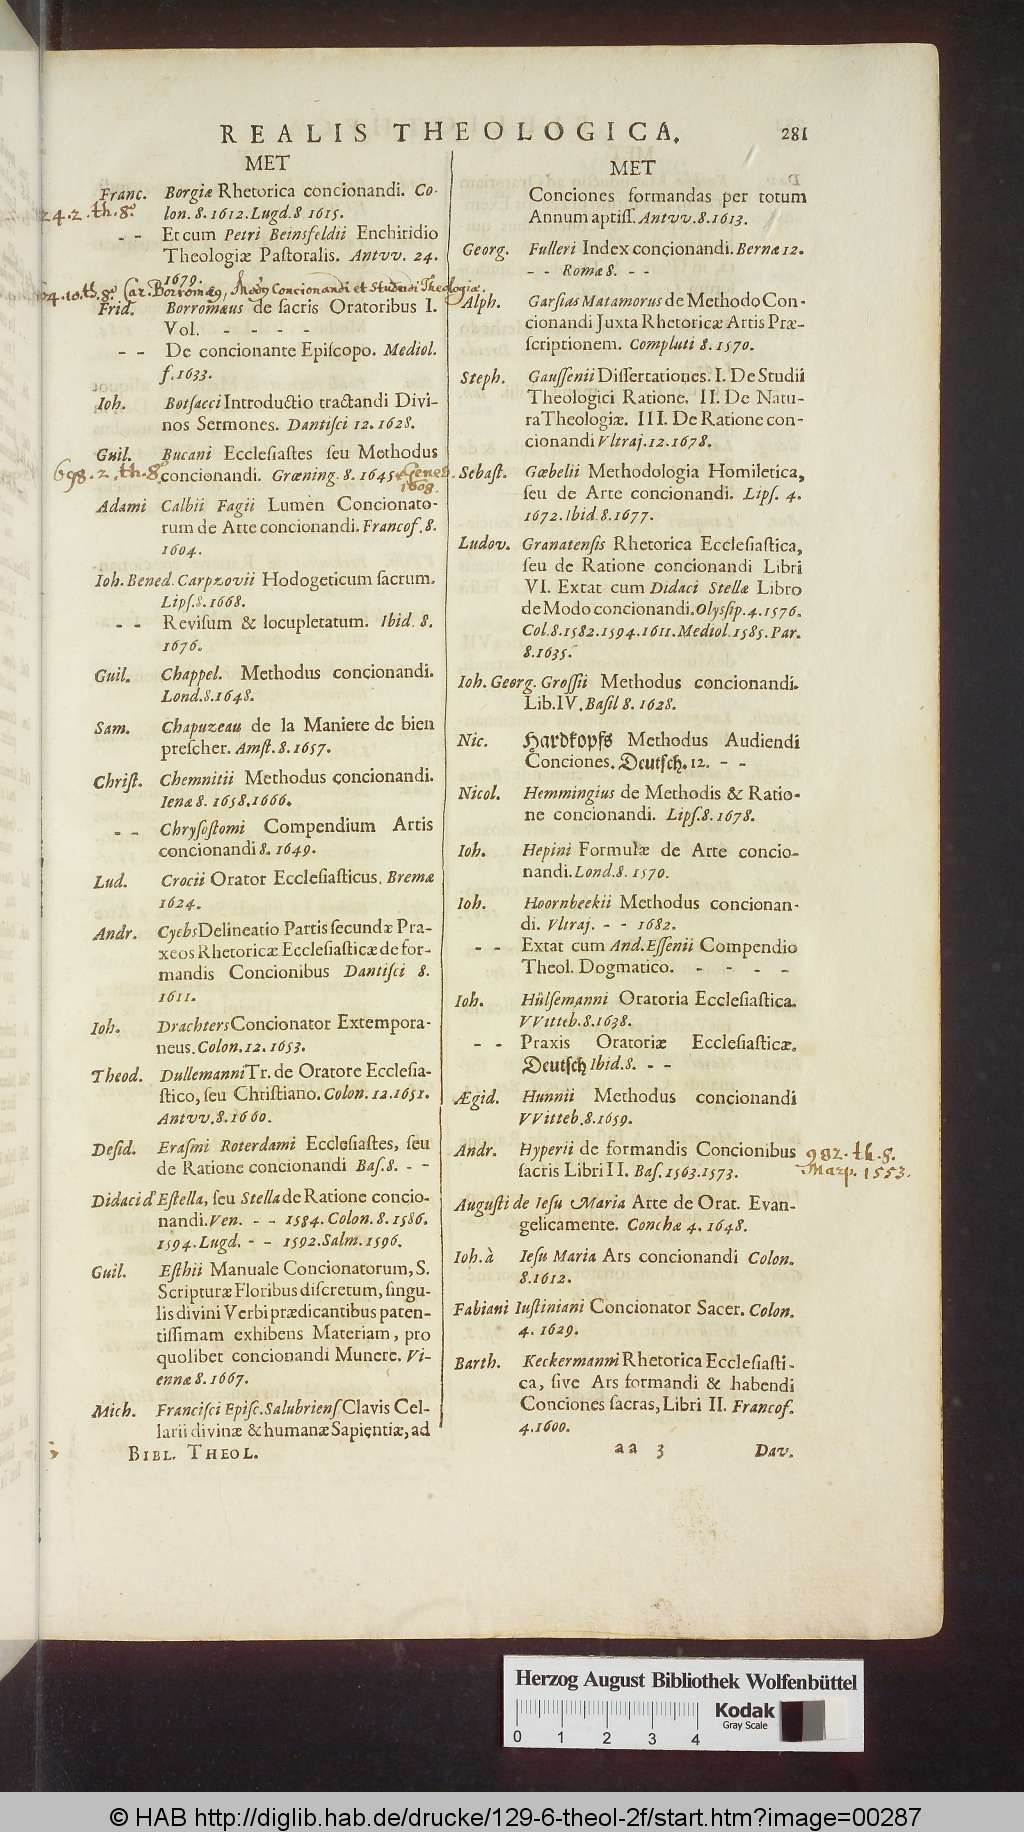 REALIS THEOLOGICA. 281
MET
Franc. Borgiæ Rhetorica concionandi. Co-
24.2.th.8º. lon. 8. 1612. Lugd. 8 1615.
- - Et cum Petri Beinsfeldii Enchiridio
Theologiæ Pastoralis. Antvv. 24.
1670.
64.10.th.8º. Car. Borromæ9, Mod9 Concionandi et Studendi Theologiæ.
Frid. Borromæus de sacris Oratoribus I.
Vol. - - - -
- - De concionante Episcopo. Mediol.
f. 1633.
Ioh. Botsacci Introductio tractandi Divi-
nos Sermones. Dantisci 12. 1628.
Guil. Bucani Ecclesiastes seu Methodus
698.2.th.8º concionandi. Grœning. 8. 1645. Genev.
1608.
Adami Calbii Fagii Lumen Concionato-
rum de Arte concionandi. Francof. 8.
1604.
Ioh. Bened. Carpzovii Hodogeticum sacrum.
Lips. 8. 1668.
- - Revisum & locupletatum. Ibid. 8.
1676.
Guil. Chappel. Methodus concionandi.
Lond. 8. 1648.
Sam. Chapuzeau de la Maniere de bien
prescher. Amst. 8. 1657.
Christ. Chemnitii Methodus concionandi.
Ienæ 8. 1658. 1666.
- - Chrysostomi Compendium Artis
concionandi 8. 1649.
Lud. Crocii Orator Ecclesiasticus. Bremæ
1624.
Andr. Cychs Delineatio Partis secundæ Pra-
xeos Rhetoricæ Ecclesiasticæ de for-
mandis Concionibus Dantisci 8.
1611.
Ioh. Drachters Concionator Extempora-
neus. Colon. 12. 1653.
Theod. Dullemanni Tr. de Oratore Ecclesia-
stico, seu Christiano. Colon. 12. 1651.
Antvv. 8. 1660.
Desid. Erasmi Roterdami Ecclesiastes, seu
de Ratione concionandi Bas. 8. - -
Didaci d'Estella, seu Stella de Ratione concio-
nandi. Ven. - - 1584. Colon. 8. 1586.
1594. Lugd. - - 1592. Salm. 1596.
Guil. Esthii Manuale Concionatorum, S.
Scripturæ Floribus discretum, singu-
lis divini Verbi prædicantibus paten-
tissimam exhibens Materiam, pro
quolibet concionandi Munere. Vi-
ennæ 8. 1667.
Mich. Francisci Episc. Salubriens Clavis Cel-
larii divinæ & humanæ Sapientiæ, ad
BIBL. THEOL.
MET
Conciones formandas per totum
Annum aptiss. Antvv. 8. 1613.
Georg. Fulleri Index concionandi. Bernæ 12.
- - Romæ 8. - -
Alph. Garsias Matamorus de Methodo Con-
cionandi Juxta Rhetoricæ Artis Præ-
scriptionem. Compluti 8. 1570.
Steph. Gaussenii Dissertationes. I. De Studii
Theologici Ratione. II. De Natu-
ra Theologiæ. III. De Ratione con-
cionandi Vltraj. 12. 1678.
Sebast. Gœbelii Methodologia Homiletica,
seu de Arte concionandi. Lips. 4.
1672. Ibid. 8. 1677.
Ludov. Granatensis Rhetorica Ecclesiastica,
seu de Ratione concionandi Libri
VI. Extat cum Didaci Stellæ Libro
de Modo concionandi. Olyssip. 4. 1576.
Col. 8. 1582. 1594. 1611. Mediol. 1585. Par.
8. 1635.
Ioh. Georg. Grossii Methodus concionandi.
Lib. IV. Basil 8. 1628.
Nic. Hardkopfs Methodus Audiendi
Conciones. Deutsch. 12. - -
Nicol. Hemmingius de Methodis & Ratio-
ne concionandi. Lips. 8. 1678.
Ioh. Hepini Formulæ de Arte concio-
nandi. Lond. 8. 1570.
Ioh. Hoornbeekii Methodus concionan-
di. Vltraj. - - 1682.
- - Extat cum And. Essenii Compendio
Theol. Dogmatico. - - - -
Ioh. Hülsemanni Oratoria Ecclesiastica.
VVitteb. 8. 1638.
- - Praxis Oratoriæ Ecclesiasticæ.
Deutsch Ibid. 8. - -
Ægid. Hunnii Methodus concionandi
VVitteb. 8. 1659.
Andr. Hyperii de formandis Concionibus 982.th.8.
sacris Libri II. Bas. 1563. 1573. Marp. 1553.
Augusti de Iesu Maria Arte de Orat. Evan-
gelicamente. Conchæ 4. 1648.
Ioh. à Iesu Maria Ars concionandi Colon.
8. 1612.
Fabiani Iustiniani Concionator Sacer. Colon.
4. 1629.
Barth. Keckermanni Rhetorica Ecclesiasti-
ca, sive Ars formandi & habendi
Conciones sacras, Libri II. Francof.
4. 1600.
aa 3 Dav.
Herzog August Bibliothek Wolfenbüttel
Kodak
Gray Scale
0 1 2 3 4
© HAB http://diglib.hab.de/drucke/129-6-theol-2f/start.htm?image=00287